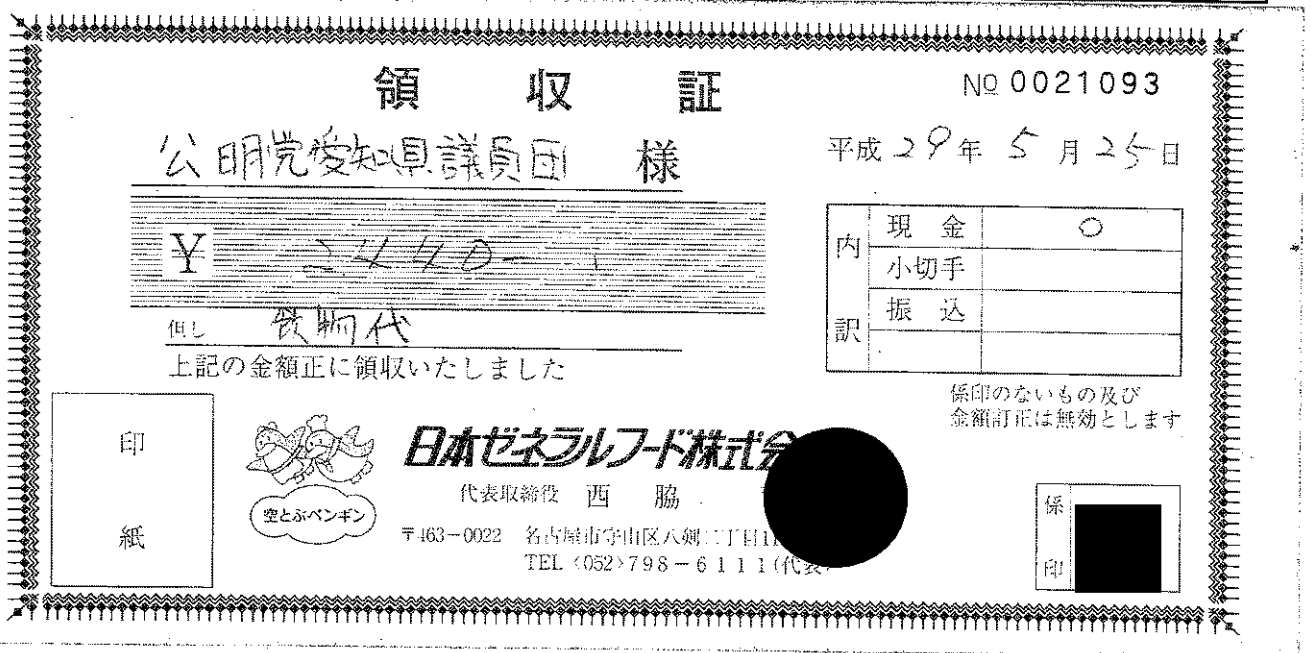 領収証
№ 0021093
公明党愛知県議員団 様
平成 29 年 5 月 25 日
¥ 2440-
但し 飲物代
上記の金額正に領収いたしました
内訳
現金 ○
小切手
振込
係印のないもの及び
金額訂正は無効とします
印紙
空とぶペンギン
日本ゼネラルフード株式会
代表取締役 西脇
〒463-0022 名古屋市守山区八剣二丁目11
TEL〈052〉798-6111(代表)
係印